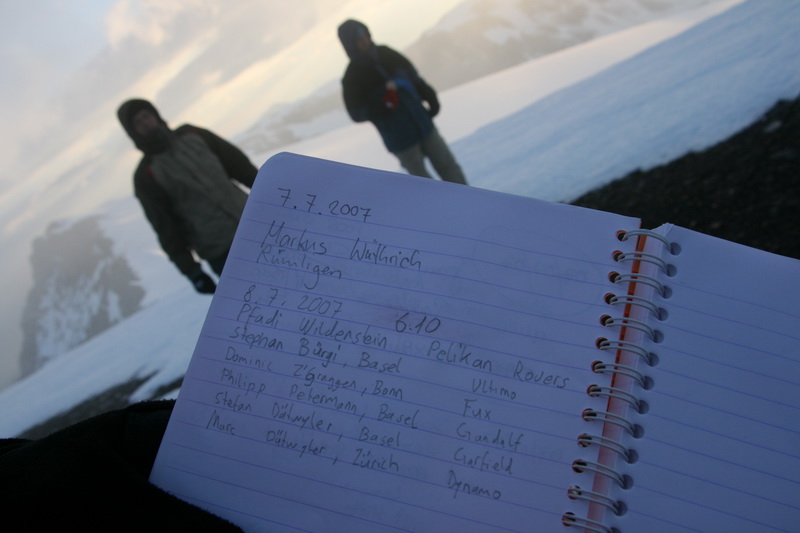 7.7.2007
Markus Wüthrich
Rümligen
8.7.2007 6.10
Pfadi Wildenstein Pelikan Rovers
Stephan Bürgi, Basel Ultimo
Dominic Z'Graggen, Bonn Fux
Philipp Petermann, Basel Gandalf
Stefan Dätwyler, Basel Garfield
Marc Dätwyler, Zürich Dynamo